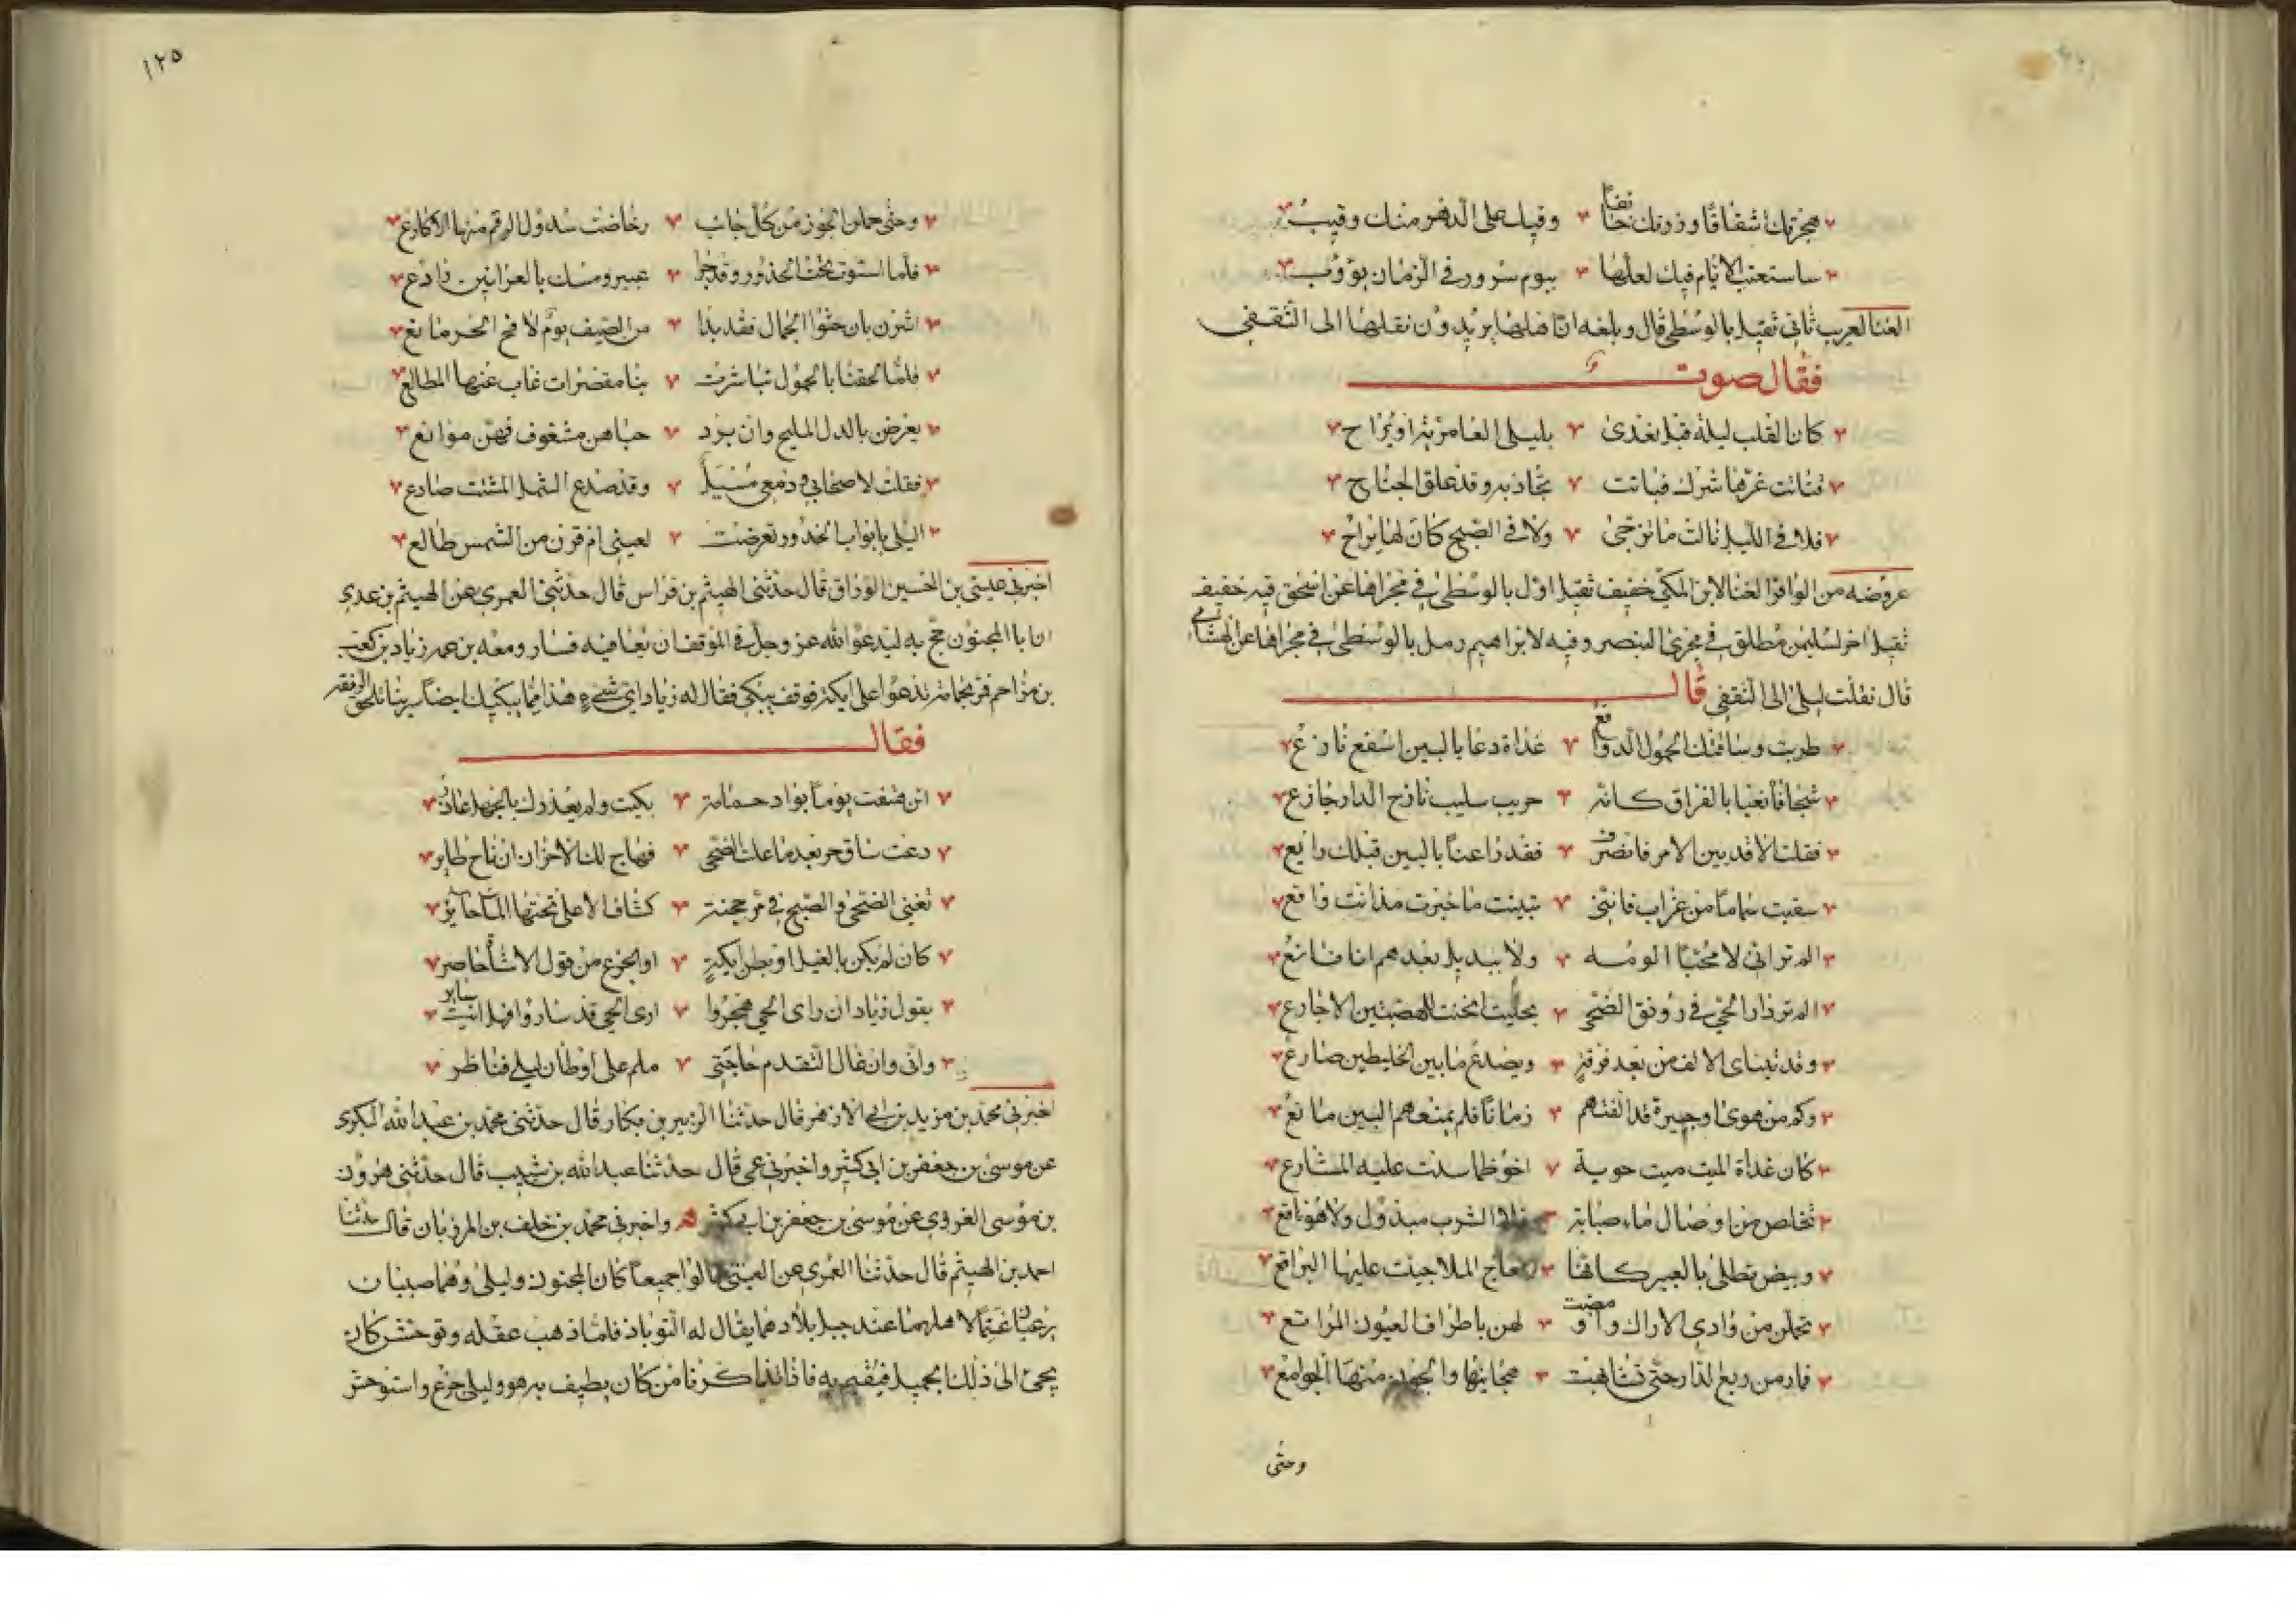 هجرتك اشفاقا وزرتك خائفا وفيك على الدهر منك رقيب
ساستعتب الايام فيك لعلها بيوم سرور في الزمان يؤوب
الغنا لعريب ثاني ثقيل بالوسطى قال وبلغه ان اهلها يريدون نقلها الى الثقفي
فقال صوت
كان القلب ليلة قيل يغدى بليلى العامرية او يراح
قطاة غرها شرك فباتت تجاذبه وقد علق الجناح
فلا في الليل نالت ما ترجى ولا في الصبح كان لها براح
عروضه من الوافر الغنا لابن المكي خفيف ثقيل اول بالوسطى في مجراها عن اسحق فيه خفيف
ثقيل اخر لسليمن مطلق في مجرى البنصر وفيه لابراهيم رمل بالوسطى في مجراها عن الهشامي
قال نقلت ليلى الى الثقفي قال
طربت وساقتك الحمول الدوافع غداة دعا بالبين اسفع نازع
شجا فاه نعيا بالفراق كانه حريب سليب نازح الدار جازع
فقلت الا قد بين الامر فانصرف فقد راعنا بالبين قبلك رايع
سقيت سماما من غراب فانني تبينت ما خبرت مذ انت واقع
الم تر اني لا محب الومه ولا ببديل بعدهم انا قانع
الم تر دار الحي في رونق الضحى بحيث انحنت للهضبتين الاجارع
وقد يتناى الالف من بعد فرقة ويصدع ما بين الخليطين صارع
وكم من هوى او جيرة قد الفتهم زمانا فلم يمنعهم البين مانع
كان غداة البين ميت حوبة اخو ظما سدت عليه المشارع
تخلص من اوصال ماء صبابة فلا الشرب مبذول ولا هو ناقع
وبيض تطلى بالعبير كانها نعاج الملا جيبت عليها البراقع
تحملن من وادي الاراك واومضت لهن باطراف العيون المراتع
فما رمن ربع الدار حتى تشابهت هجاينها والجون منها الجوامع
وحتى
١٢٥
وحتى حملن الجوز من كل جانب وخاضت سدول الرقم منها الاكارع
فلما استوت تحت الخدور وقد جرا عبير ومسك بالعرانين رادع
اشرن بان حثوا الجمال فقد بدا من الصيف يوم لافح الحر ماتع
فلما لحقنا بالحمول تباشرت بنا مقصرات غاب عنها المطالع
يعرضن بالدل المليح وان يرد جناهن مشغوف فهن موانع
فقلت لاصحابي ودمعي مسيل وقد صدع الشمل المشتت صادع
اليلى بابواب الخدور تعرضت لعيني ام قرن من الشمس طالع
اخبرني عيسى بن الحسين الوراق قال حدثني الهيثم بن فراس قال حدثني العمري عن الهيثم بن عدي
ان ابا المجنون حج به ليدعو الله عز وجل في الموقف ان يعافيه فسار ومعه بن عمه زياد بن كعب
بن مزاحم فمر بحمامة تدعو على ايكة فوقف يبكي فقال له زياد اي شيء هذا ما يبكيك ايضا سر بنا نلحق الرفقه
فقال
اان هتفت يوما بواد حمامة بكيت ولم يعذرك بالجهل عاذر
دعت ساق حر بعد ما علت الضحى فهاج لك الاحزان ان ناح طاير
تغني الضحى والصبح في مرجحنة كثاف الاعلى تحتها الما حاير
كان لم يكن بالغيل او بطن ايكة او الجزع من قول الاشاة حاضر
يقول زياد ان راى الحي هجروا ارى الحي قد ساروا فهل انت ساير
واني وان غال التقدم حاجتي ملم على اوطان ليلى فناظر
اخبرني محمد بن مزيد بن ابي الازهر قال حدثنا الزبير بن بكار قال حدثني محمد بن عبد الله البكري
عن موسى بن جعفر بن ابي كثير واخبرني عمي قال حدثنا عبد الله بن شبيب قال حدثني هرون
بن موسى الفروي عن موسى بن جعفر بن ابي كثير واخبرني محمد بن خلف بن المرزبان قال حدثنا
احمد بن الهيثم قال حدثنا العمري عن العتبي قالوا جميعا كان المجنون وليلى وهما صبيان
يرعيان غنما لاهلهما عند جبل ببلادهما يقال له التوباذ فلما ذهب عقله وتوحش كان
يجئ الى ذلك الجبل فيقيم به فاذا تذاكر من كان يطيف به هو وليلى جزع واستوحش